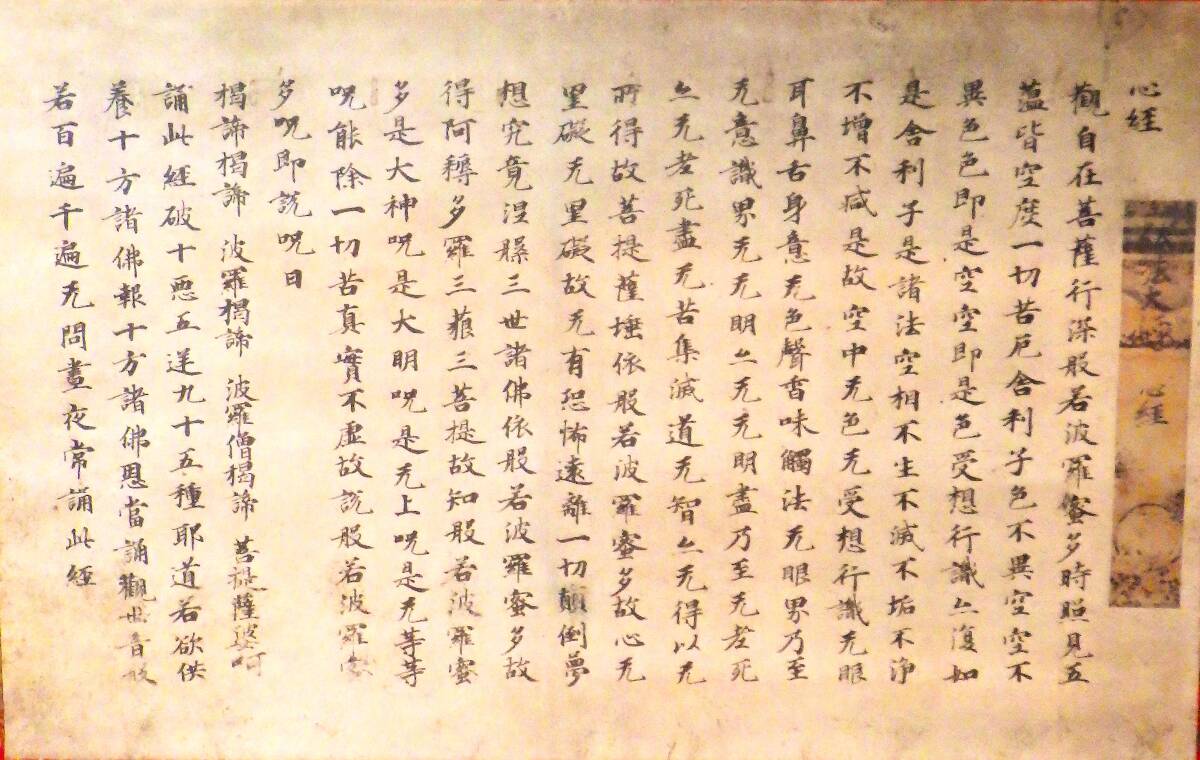 心経
觀自在菩薩行深般若波羅蜜多時照見五
蕴皆空度一切苦厄舍利子色不異空空不
異色色即是空空即是色受想行識亦復如
是舍利子是諸法空相不生不滅不垢不浄
不增不减是故空中无色无受想行識无眼
耳鼻舌身意无色聲香味觸法无眼界乃至
无意識界无无明亦无无明盡乃至无老死
亦无老死盡无苦集滅道无智亦无得以无
所得故菩提薩埵依般若波羅蜜多故心无
罣礙无罣礙故无有恐怖遠離一切顛倒夢
想究竟涅槃三世諸佛依般若波羅蜜多故
得阿耨多羅三藐三菩提故知般若波羅蜜
多是大神呪是大明呪是无上呪是无等等
呪能除一切苦真實不虛故說般若波羅蜜
多呪即說呪曰
揭諦揭諦 波羅揭諦 波羅僧揭諦 菩提薩婆呵
誦此經破十惡五逆九十五種耶道若欲供
養十方諸佛報十方諸佛恩當誦觀世音般
若百遍千遍无問晝夜常誦此經
心経